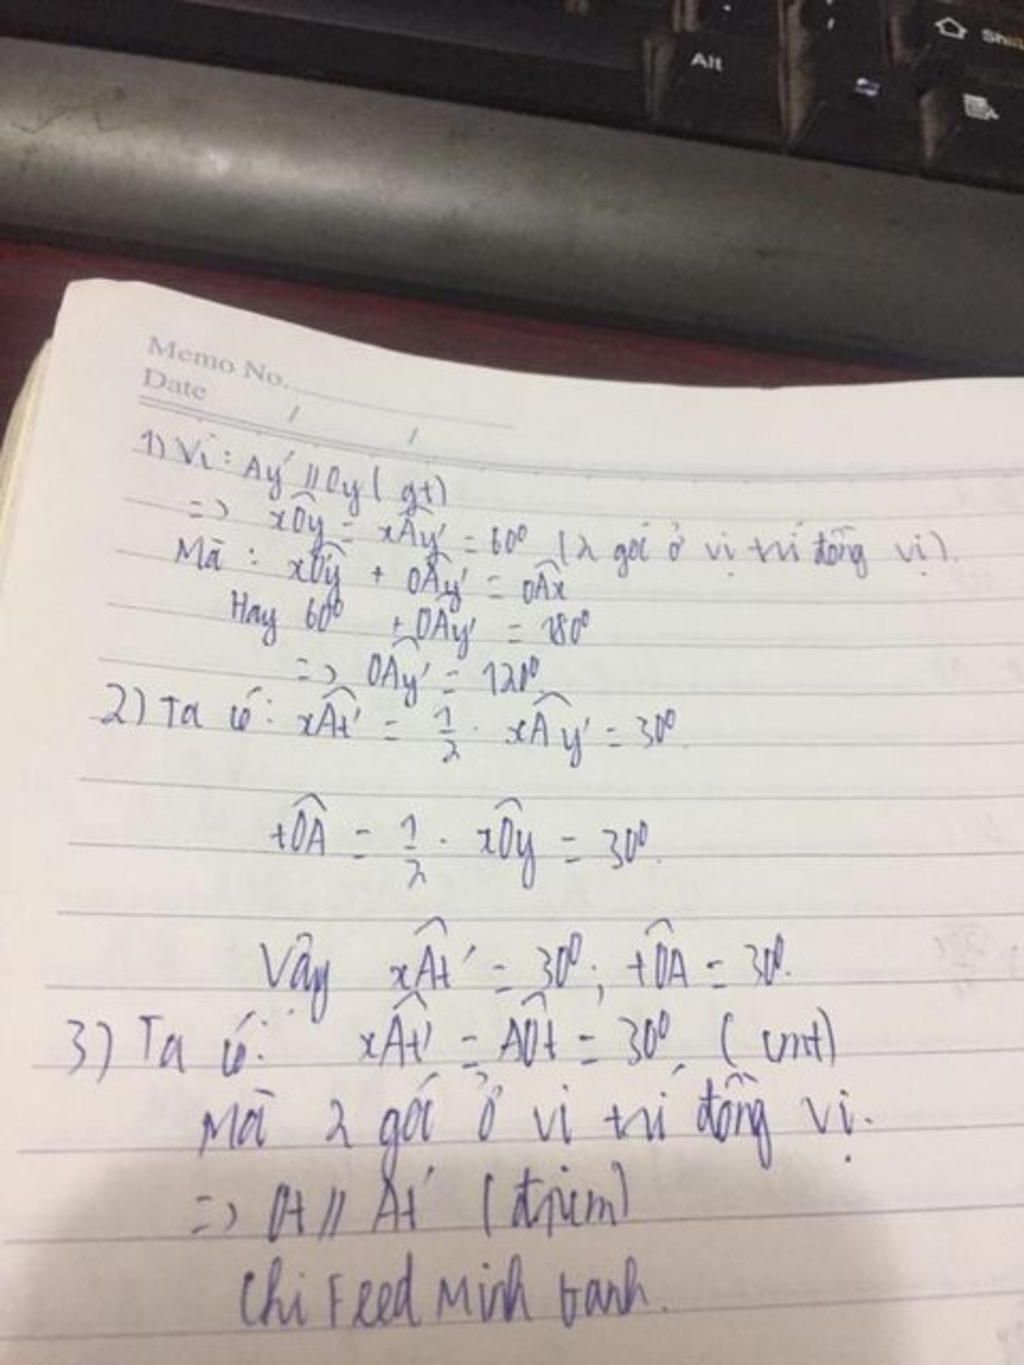 Alt
Shift
Memo No.
Date / /
1) Vì : Ay' // Oy ( gt )
=> xÔy = xÂy' = 60⁰ ( 2 góc ở vị trí đồng vị ).
Mà : xÔy + OÂy' = OÂx
Hay 60⁰ + OÂy' = 180⁰
=> OÂy' = 120⁰
2) Ta có : xÂt' = 1/2 . xÂy' = 30⁰
tÔA = 1/2 . xÔy = 30⁰.
Vậy xÂt' = 30⁰ ; tÔA = 30⁰.
3) Ta có : xÂt' = AÔt = 30⁰. ( cmt )
Mà 2 góc ở vị trí đồng vị.
=> Ot // At' ( đpcm )
Chi Feed Minh